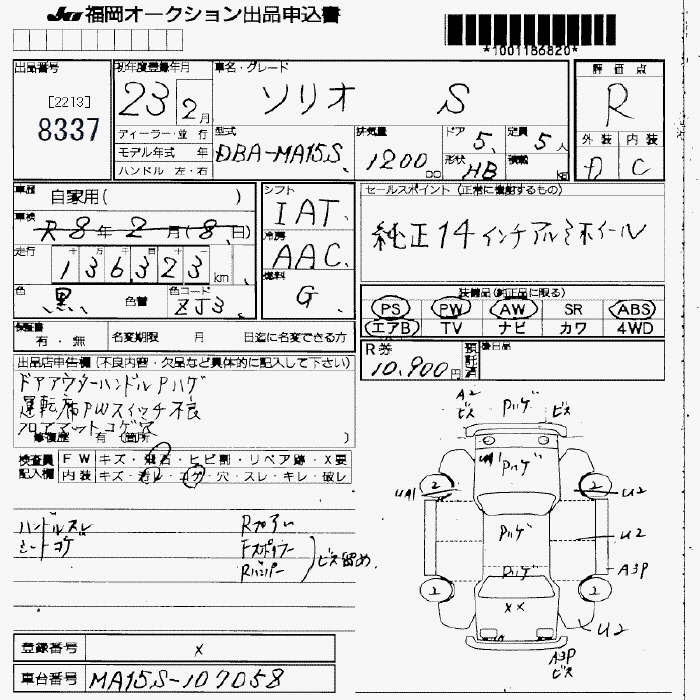 JU 福岡オークション出品申込書
*1001186820*
出品番号
[2213]
8337
初年度登録年月
23 2月
車名・グレード
ソリオ S
評価点
R
ディーラー・並 行
モデル年式 年
ハンドル 左・右
型式
DBA-MA15S
排気量
1200 CC
ドア 5
形状 HB
定員 5人
積載 kg
外装 内装
D C
車歴 自家用( )
車検 R8年2月(8日)
走行 136323km
色 黒 色替 色コード ZJ3
シフト
IAT
冷房
AAC
燃料
G
セールスポイント (正常に機能するもの)
純正14インチアルミホイール
装備品(純正品に限る)
PS PW AW SR ABS
エアB TV ナビ カワ 4WD
保証書 有・無
名変期限 月 日迄に名変できる方
R券 10,900円
預託済
後日品
出品店申告欄 (不良内容・欠品など具体的に記入して下さい)
ドアアウターハンドルPハゲ
運転席PWスイッチ不良
フロアマットコゲ穴
修復歴 有 (箇所 )
検査員記入欄
FW キズ・飛石・ヒビ割・リペア跡・X要
内装 キズ・汚レ・コゲ・穴・スレ・キレ・破レ
ハンドルスレ
シートコゲ
Fスポイラー
Rバンパー
ビス留め
A2 ビス Pハゲ ビス
UA1 Pハゲ
2 2
UA1 U2
Pハゲ U2
Pハゲ A3P
2 2
XX
U2
A3P ビス
登録番号 X
車台番号 MA15S-107058